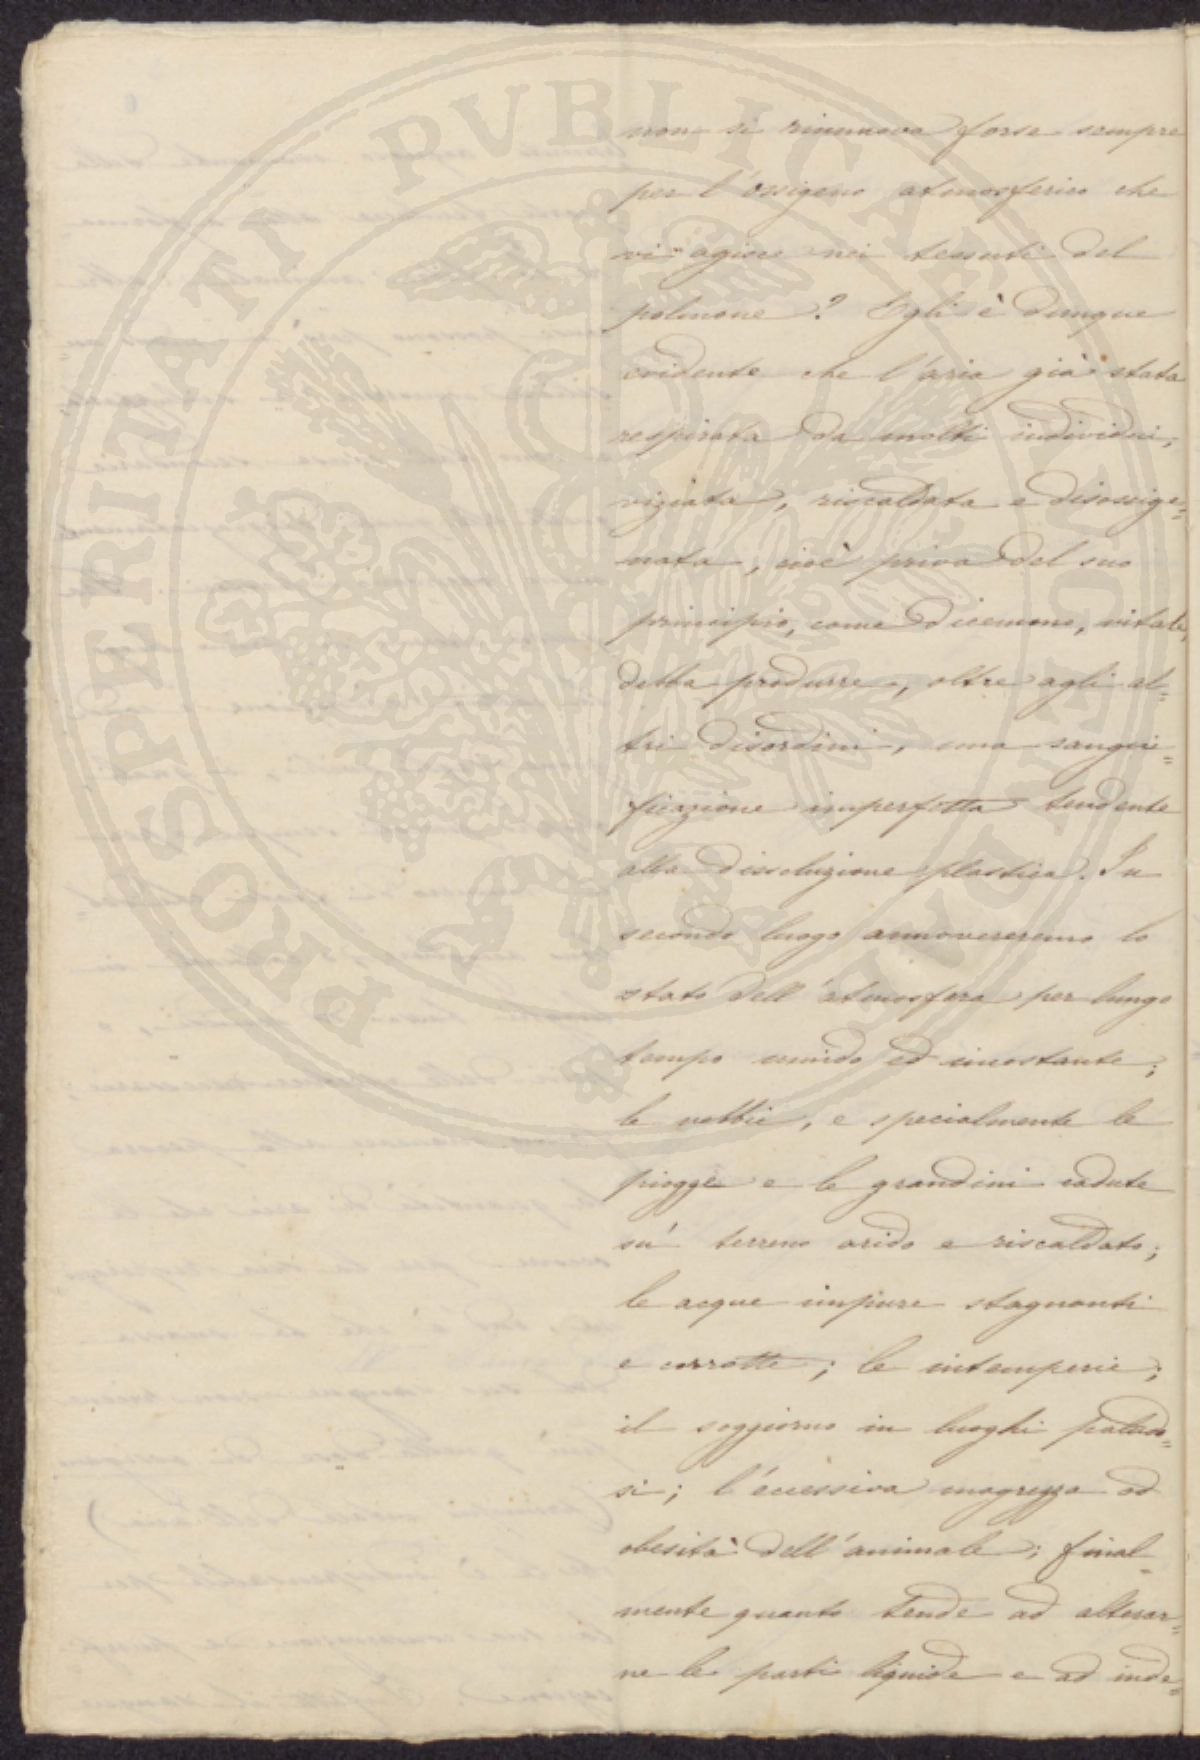 non si rinnuova forse sempre
per l'ossigeno atmosferico che
vi agisce nei tessuti del
polmone? Egli è dunque
evidente che l'aria già stata
respirata da molti individui,
viziata, riscaldata e disossige=
nata, cioè priva del suo
principio, come dicemmo, vitale,
debba produrre, oltre agli al=
tri disordini, una sangui=
ficazione imperfetta tendente
alla dissoluzione plastica. In
secondo luogo annovereremo lo
stato dell'atmosfera per lungo
tempo umido ed incostante;
le nebbie, e specialmente le
piogge e le grandini cadute
su' terreno arido e riscaldato;
le acque impure stagnanti
e corrotte; le intemperie;
il soggiorno in luoghi paludo=
si; l'eccessiva magrezza od
obesità dell'animale; final=
mente quanto tende ad alterar=
ne le parti liquide e ad inde=
PROSPERITATI PVBLICAE AVGENDAE